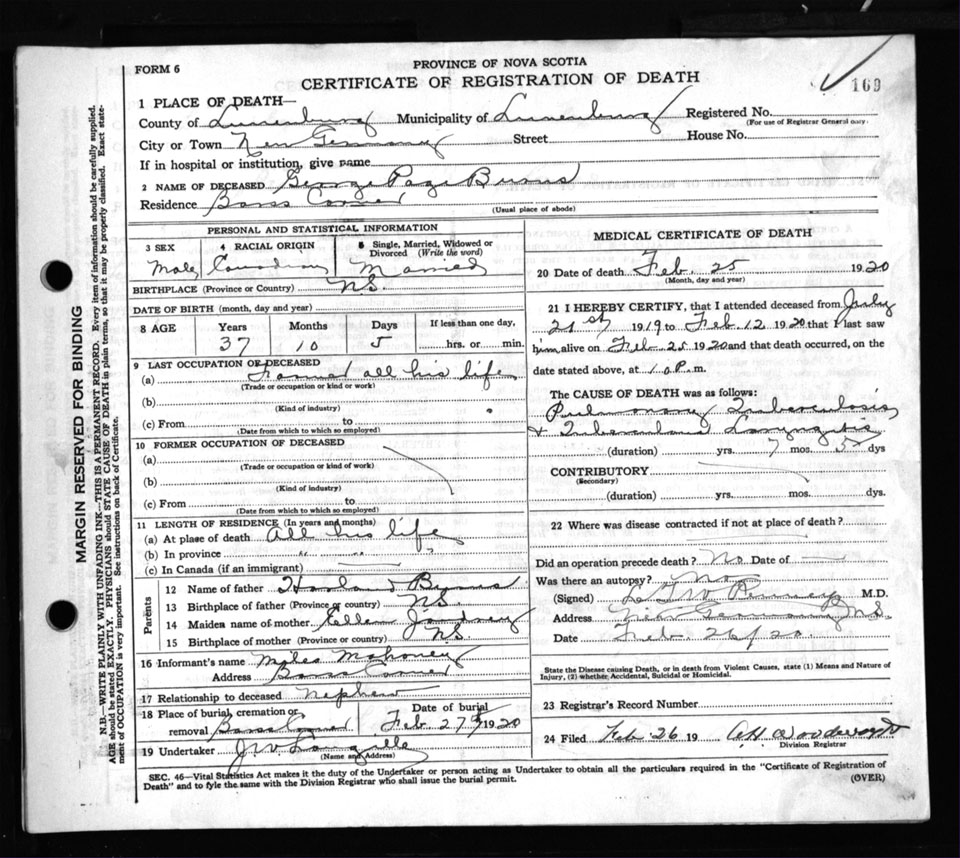 FORM 6
PROVINCE OF NOVA SCOTIA
CERTIFICATE OF REGISTRATION OF DEATH
169
1 PLACE OF DEATH—
County of Lunenburg Municipality of Lunenburg Registered No.
(For use of Registrar General only.
City or Town New Germany Street House No.
If in hospital or institution, give name
2 NAME OF DECEASED George Page Burns
Residence Barss Corner
(Usual place of abode)
PERSONAL AND STATISTICAL INFORMATION
3 SEX Male
4 RACIAL ORIGIN Canadian
5 Single, Married, Widowed or Divorced (Write the word) Married
BIRTHPLACE (Province or Country) N.S.
DATE OF BIRTH (month, day and year)
8 AGE Years Months Days If less than one day,
37 10 5 hrs. or min.
9 LAST OCCUPATION OF DECEASED
(a) Farmer all his life
(Trade or occupation or kind of work)
(b)
(Kind of industry)
(c) From to
(Date from which to which so employed)
10 FORMER OCCUPATION OF DECEASED
(a)
(Trade or occupation or kind of work)
(b)
(Kind of industry)
(c) From to
(Date from which to which so employed)
11 LENGTH OF RESIDENCE (In years and months)
(a) At place of death All his life
(b) In province " " "
(c) In Canada (if an immigrant)
Parents
12 Name of father Burns
13 Birthplace of father (Province or country) N.S.
14 Maiden name of mother Ellen
15 Birthplace of mother (Province or country) N.S.
16 Informant's name Miles Mahoney
Address Barss Corner
17 Relationship to deceased Nephew
18 Place of burial, cremation or removal Barss Corner
Date of burial Feb 27th 1920
19 Undertaker J.W. Langille
(Name and Address)
MEDICAL CERTIFICATE OF DEATH
20 Date of death Feb. 25 1920
(Month, day and year)
21 I HEREBY CERTIFY, that I attended deceased from July
21st 1919 to Feb 12 1920 that I last saw
him alive on Feb 25 1920 and that death occurred, on the
date stated above, at 10 P.m.
The CAUSE OF DEATH was as follows:
Pulmonary Tuberculosis
& Tuberculous Laryngitis
(duration) yrs. 7 mos. 5 dys
CONTRIBUTORY
(Secondary)
(duration) yrs. mos. dys.
22 Where was disease contracted if not at place of death?
Did an operation precede death? No Date of
Was there an autopsy? No
(Signed) M.D.
Address New Germany N.S.
Date Feb 26/20
State the Disease causing Death, or in death from Violent Causes, state (1) Means and Nature of
Injury, (2) whether Accidental, Suicidal or Homicidal.
23 Registrar's Record Number
24 Filed Feb 26 19
Division Registrar
SEC. 46—Vital Statistics Act makes it the duty of the Undertaker or person acting as Undertaker to obtain all the particulars required in the "Certificate of Registration of
Death" and to fyle the same with the Division Registrar who shall issue the burial permit.
(OVER)
MARGIN RESERVED FOR BINDING
N.B.—WRITE PLAINLY WITH UNFADING INK—THIS IS A PERMANENT RECORD. Every item of information should be carefully supplied.
AGE should be stated EXACTLY. PHYSICIANS should STATE CAUSE OF DEATH in plain terms, so that it may be properly classified. Exact state-
ment of OCCUPATION is very important. See instructions on back of Certificate.